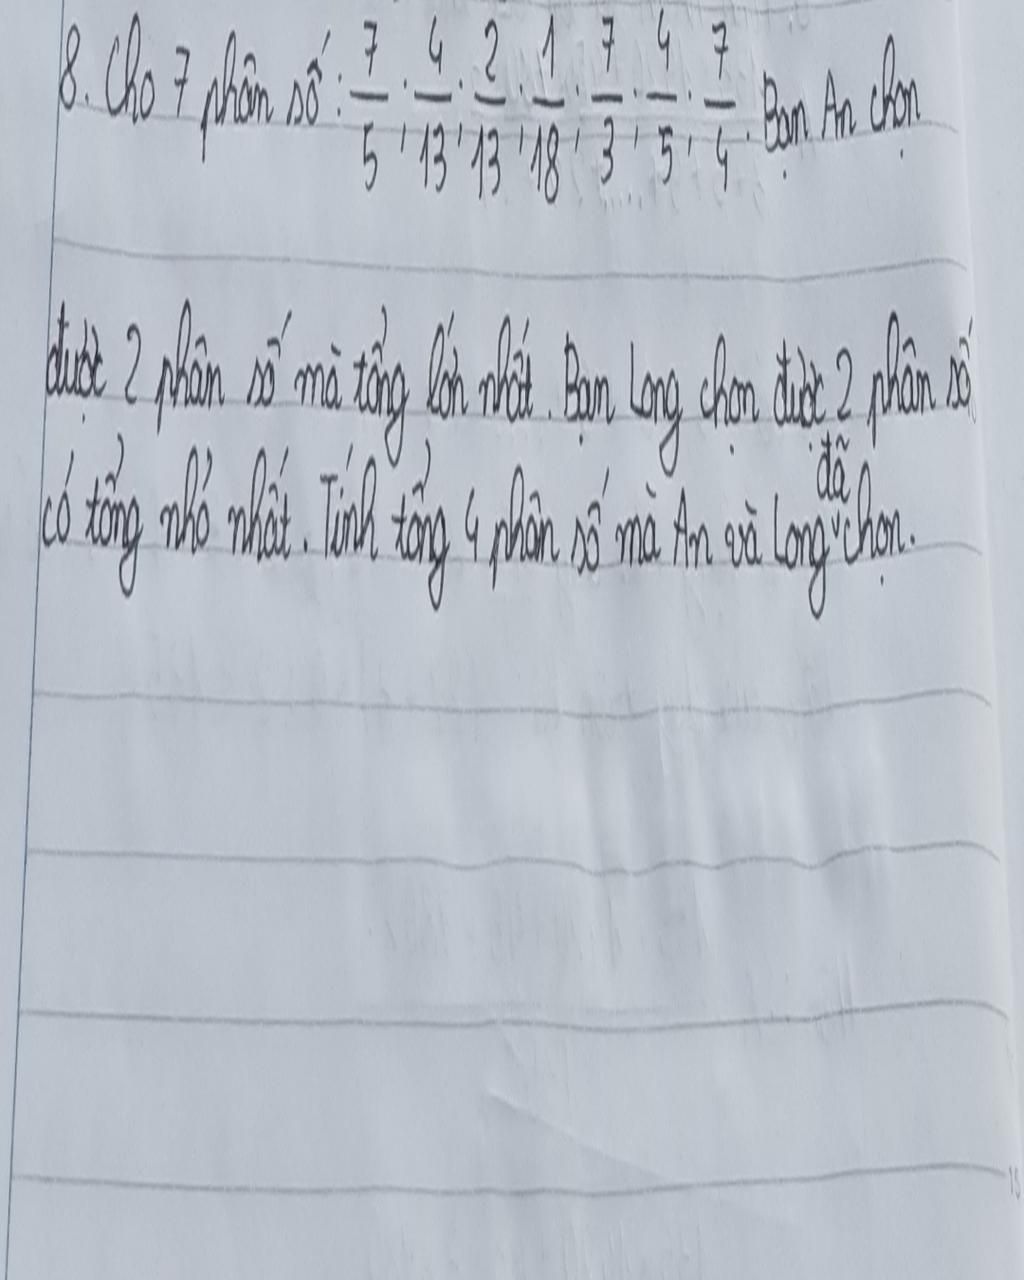 8. Cho 7 phân số: 7/5; 4/13; 2/13; 1/18; 7/3; 4/5; 7/4. Bạn An chọn
được 2 phân số mà tổng lớn nhất. Bạn Long chọn được 2 phân số
có tổng nhỏ nhất. Tính tổng 4 phân số mà An và Long đã chọn.
15